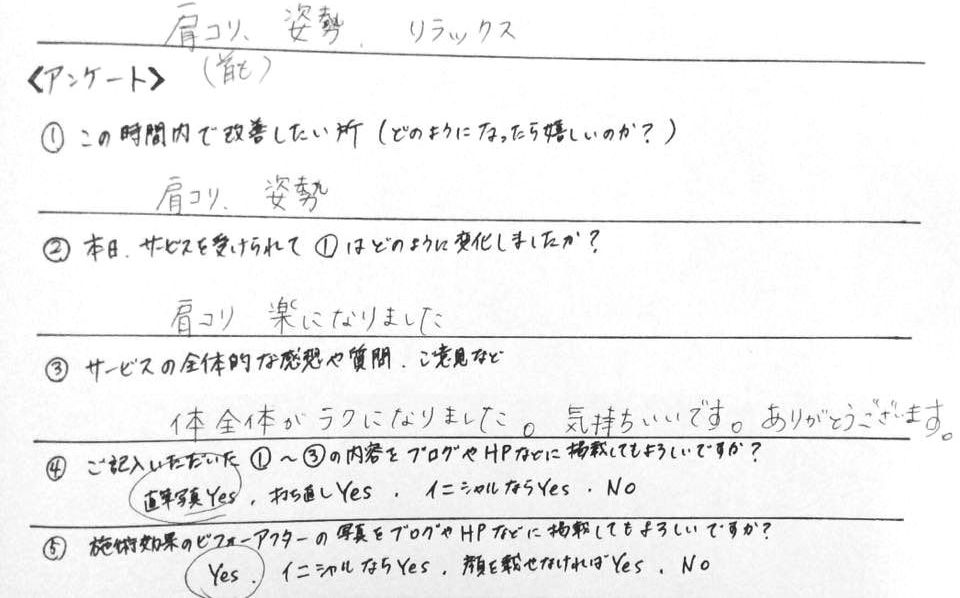 肩コリ、姿勢、リラックス
(首も)
〈アンケート〉
① この時間内で改善したい所(どのようになったら嬉しいのか?)
肩コリ、姿勢
② 本日、サービスを受けられて①はどのように変化しましたか?
肩コリ 楽になりました
③ サービスの全体的な感想や質問、ご意見など
体全体がラクになりました。気持ちいいです。ありがとうございます。
④ ご記入いただいた①～③の内容をブログやHPなどに掲載してもよろしいですか?
直筆写真Yes、打ち直しYes、イニシャルならYes、No
⑤ 施術効果のビフォーアフターの写真をブログやHPなどに掲載してもよろしいですか?
Yes、イニシャルならYes、顔を載せなければYes、No